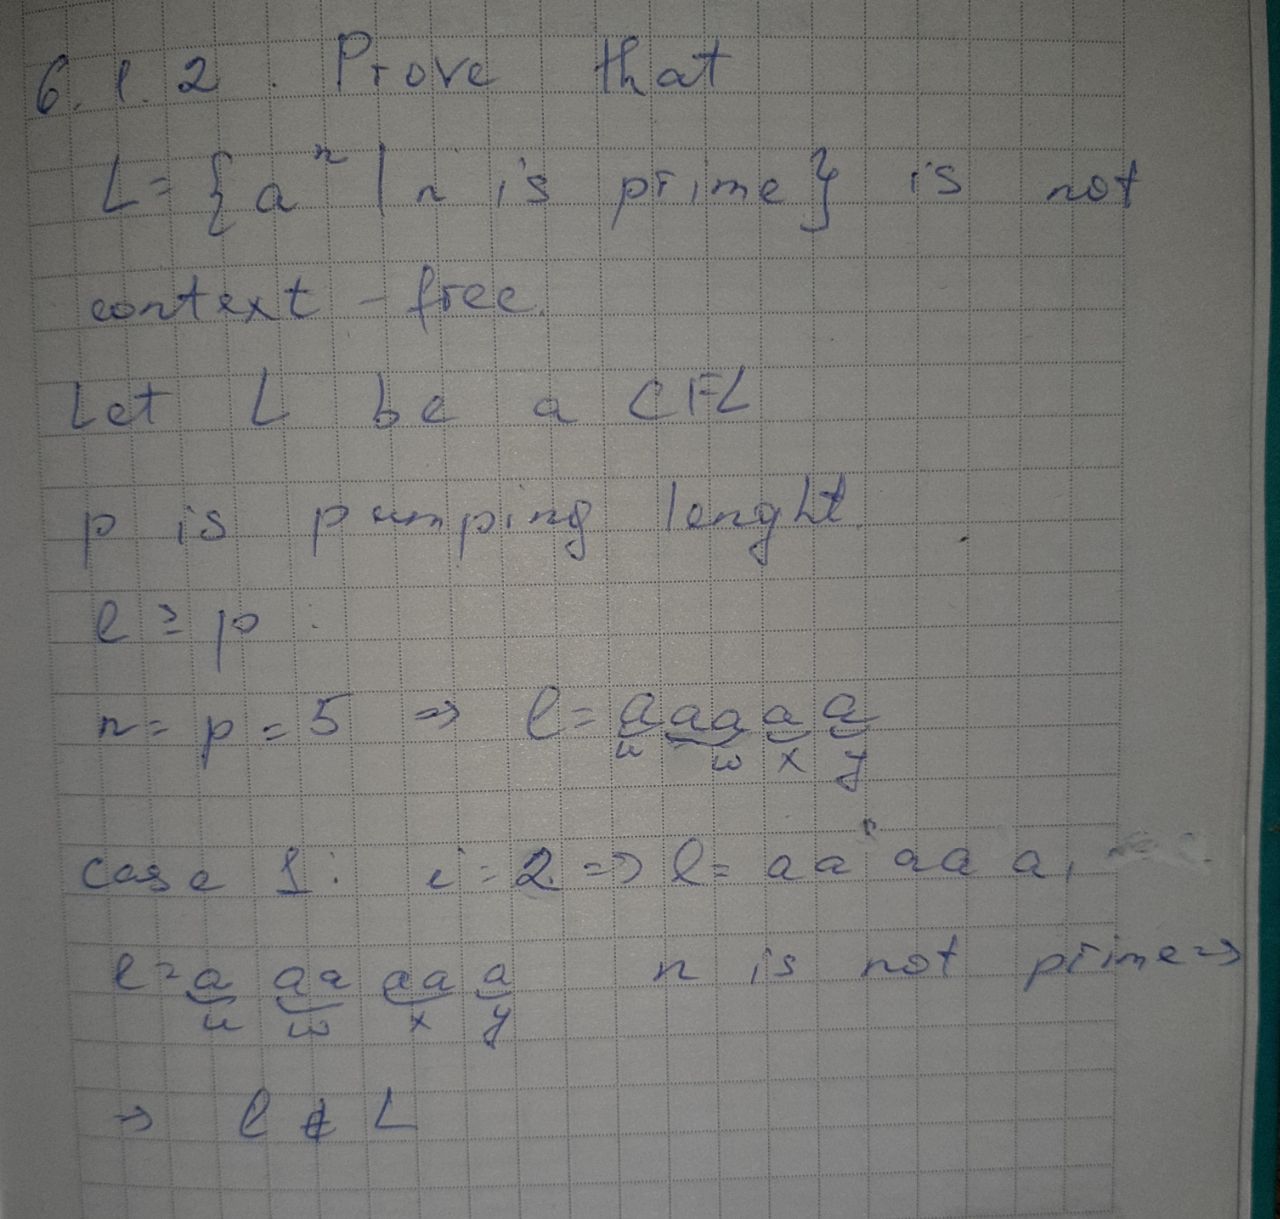 6.1.2. Prove that
L = {a^n | n is prime} is not
context-free.
Let L be a CFL
p is pumping lenght.
l ≥ p :
n = p = 5 => l = a aa a a
u w x y
case 1: i = 2 => l = aa aa a,
l = a aa aa a n is not prime =>
u w x y
=> l ∉ L